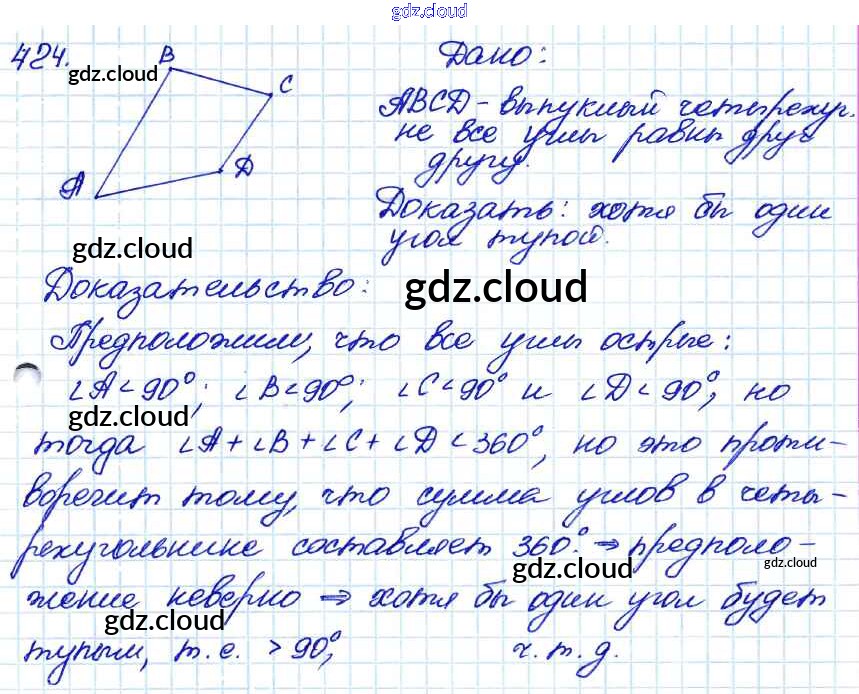 gdz.cloud
424.
B
C
D
A
gdz.cloud
Дано:
ABCD - выпуклый четырехуг.
не все углы равны друг
другу.
Доказать: хотя бы один
угол тупой.
gdz.cloud
Доказательство:
gdz.cloud
Предположим, что все углы острые:
∠A<90°; ∠B<90°; ∠C<90° и ∠D<90°, но
gdz.cloud
тогда ∠A+∠B+∠C+∠D<360°, но это проти-
gdz.cloud
воречит тому, что сумма углов в четы-
рехугольнике составляет 360°. ⇒ предполо-
gdz.cloud
gdz.cloud
жение неверно ⇒ хотя бы один угол будет
gdz.cloud
тупым, т.е. >90°, ч.т.д.